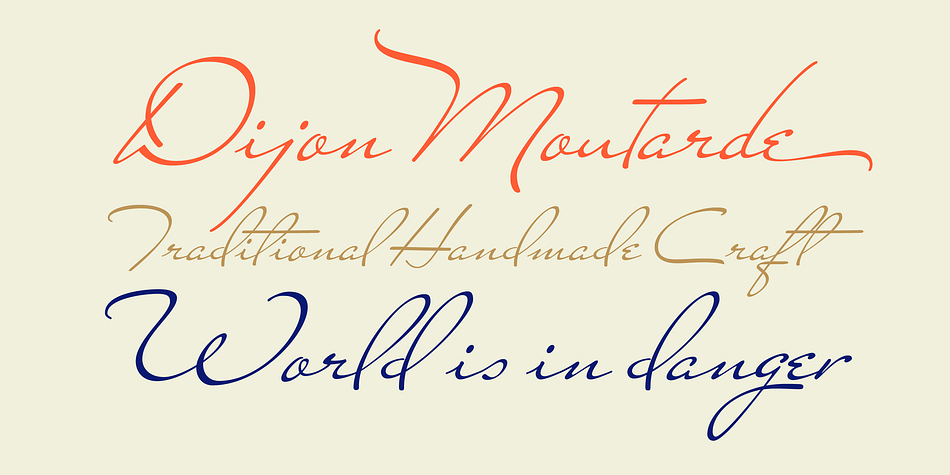 Dijon Moutarde
Traditional Handmade Craft
World is in danger